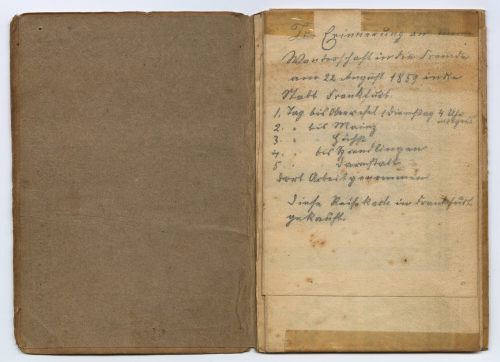 Zur Erinnerung an meine
Wanderschaft in der Fremde
am 22 August 1859 in der
Stadt Frankfurt.
1. Tag bis Oberwesel (Dienstag 4 Uhr
morgens
2. " bis Mainz
3 " Höchst
4. " bis Sprendlingen
5 " Darmstadt
dort Arbeit genommen
diese Reisekarte in Frankfurt
gekauft.